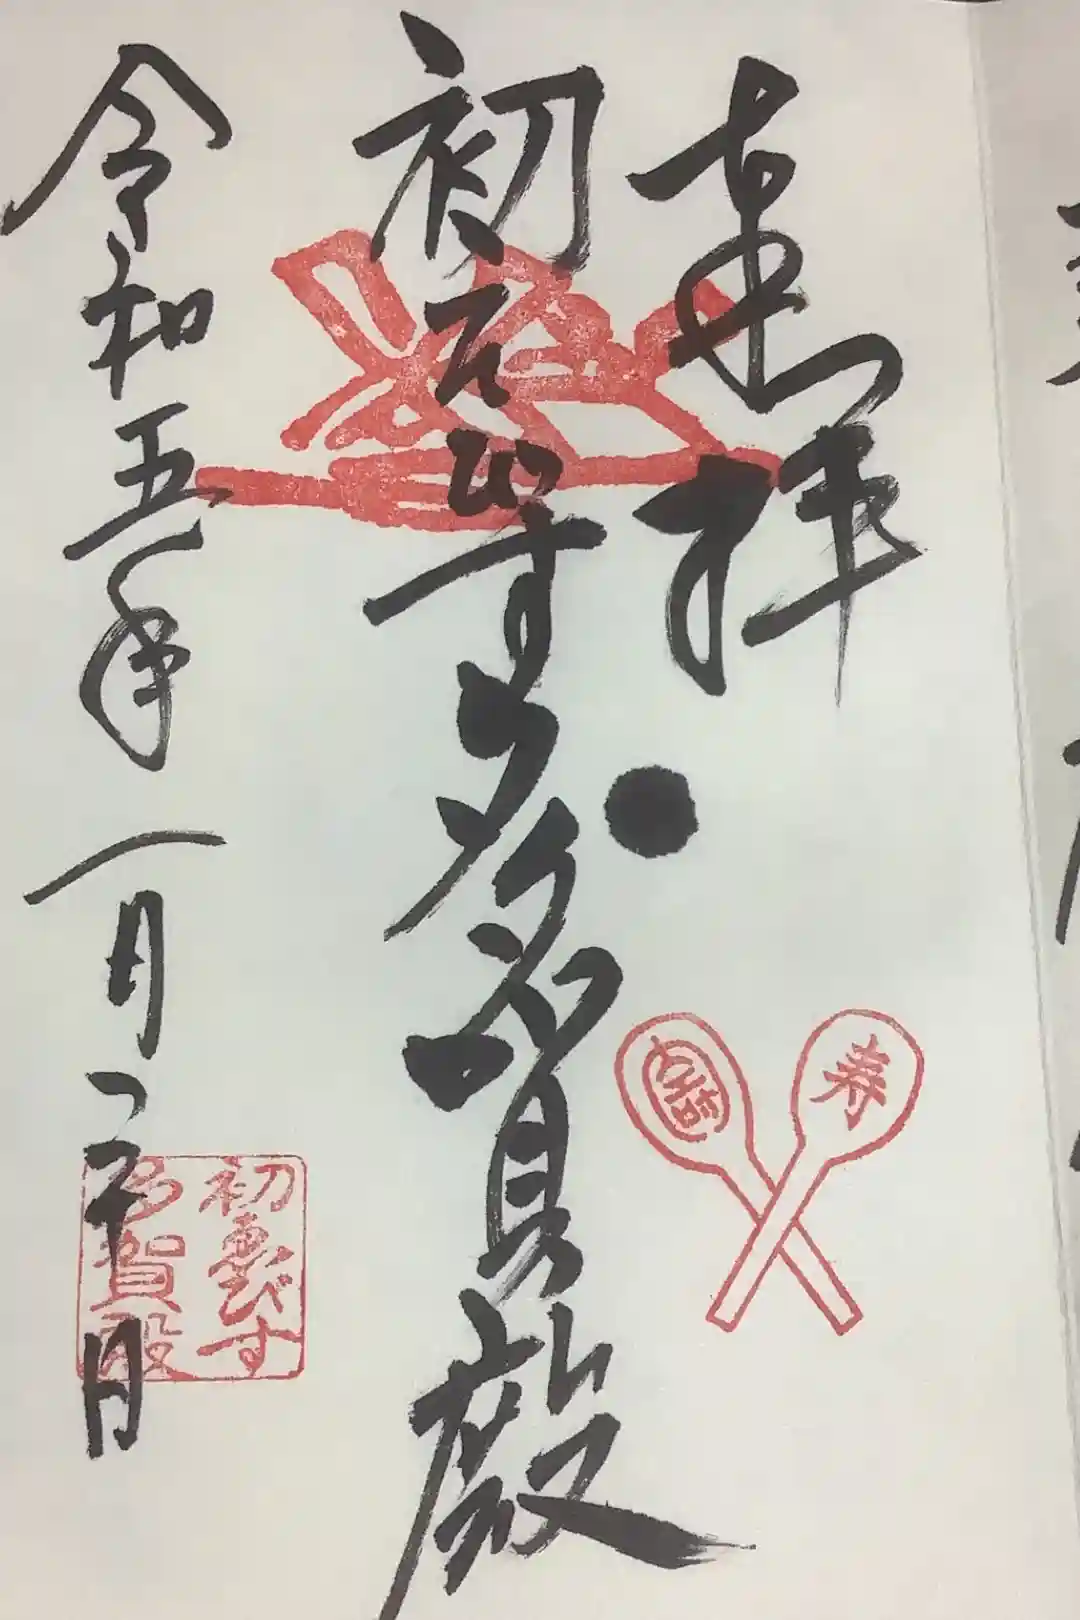 奉拝
初ゑびす多賀殿
令和五年一月二十日
寿
初ゑびす
多賀殿